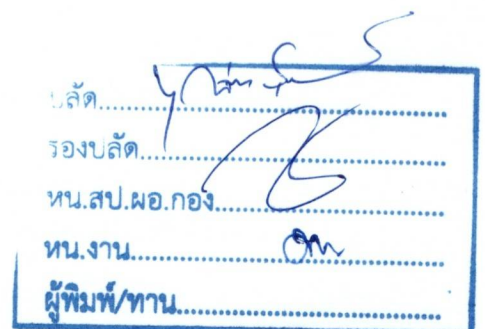 ปลัด..........
รองปลัด..........
หน.สป.ผอ.กอง..........
หน.งาน..........
ผู้พิมพ์/ทาน..........